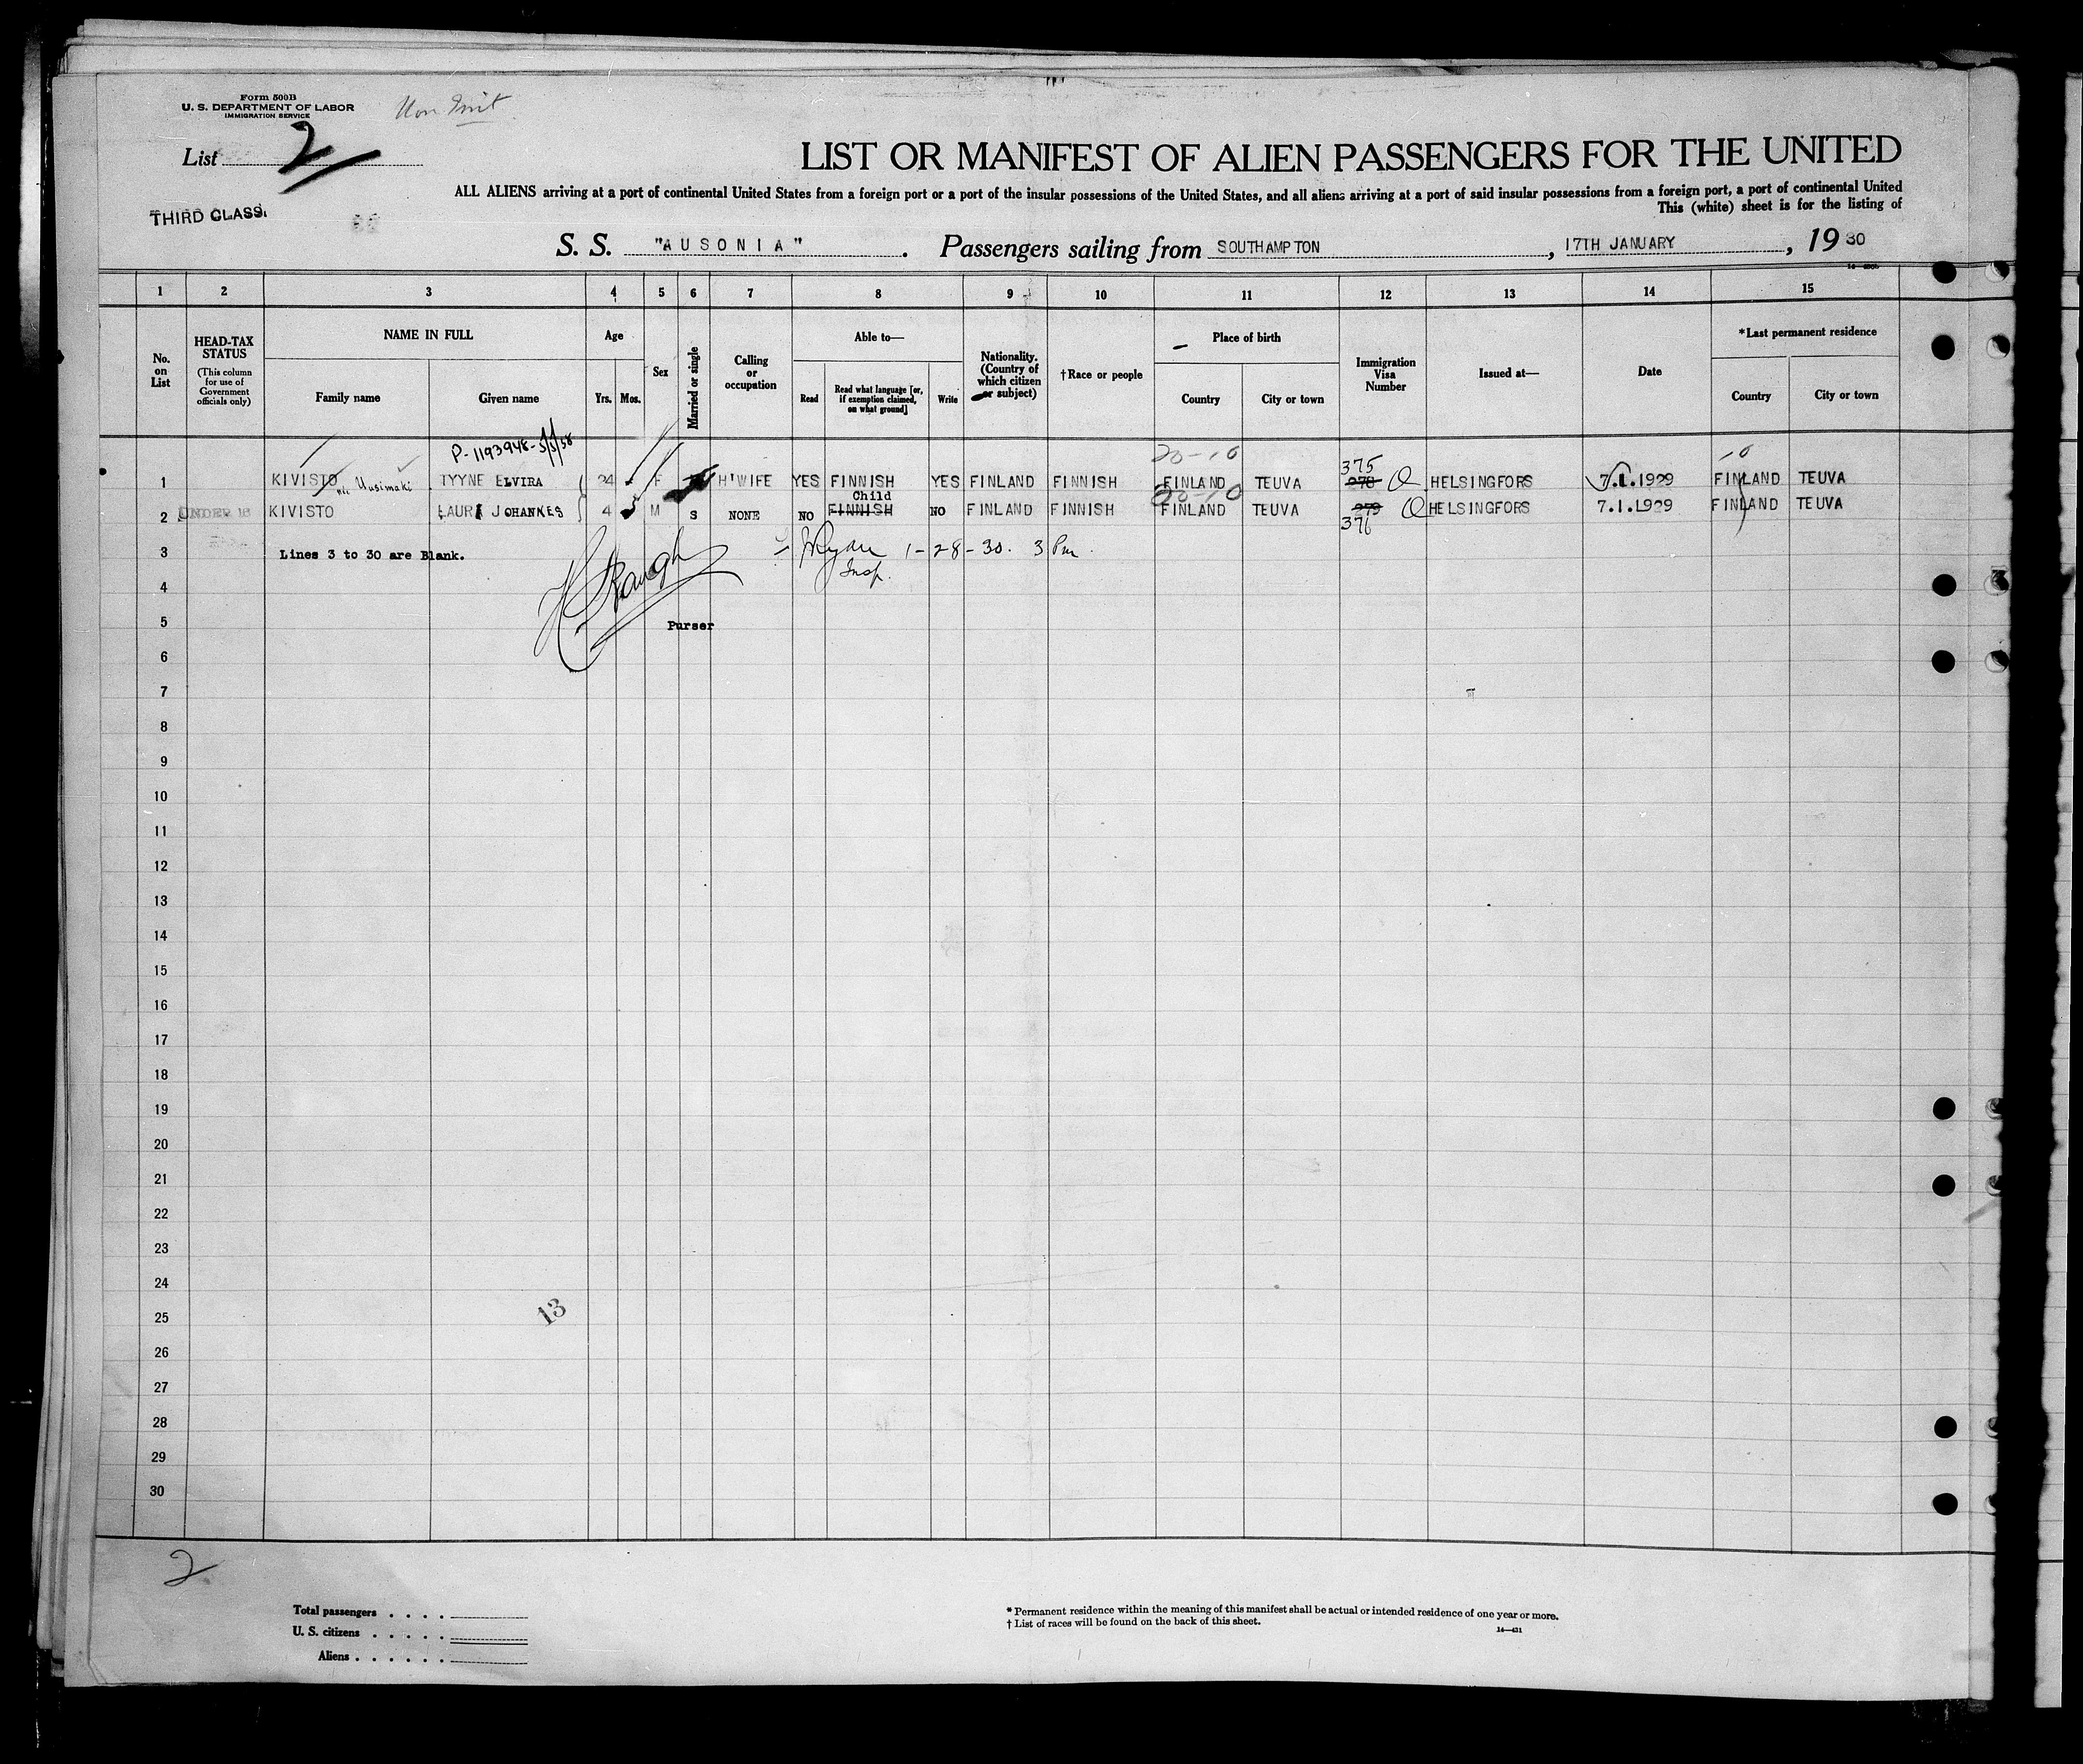 Form 500B
U. S. DEPARTMENT OF LABOR
IMMIGRATION SERVICE
List 2
THIRD CLASS.
LIST OR MANIFEST OF ALIEN PASSENGERS FOR THE UNITED
ALL ALIENS arriving at a port of continental United States from a foreign port or a port of the insular possessions of the United States, and all aliens arriving at a port of said insular possessions from a foreign port, a port of continental United
This (white) sheet is for the listing of
S. S. "AUSONIA". Passengers sailing from SOUTHAMPTON, 17TH JANUARY, 19 30
1 2 3 4 5 6 7 8 9 10 11 12 13 14 15
No. on List
HEAD-TAX STATUS (This column for use of Government officials only)
NAME IN FULL
Family name Given name
Age
Yrs. Mos.
Sex
Married or single
Calling or occupation
Able to—
Read
Read what language [or, if exemption claimed, on what ground]
Write
Nationality. (Country of which citizen or subject)
†Race or people
Place of birth
Country City or town
Immigration Visa Number
Issued at—
Date
*Last permanent residence
Country City or town
P-1193948-5/5/38
20-10
375
1 KIVISTO née Uusimaki TYYNE ELVIRA 24 F H'WIFE YES FINNISH YES FINLAND FINNISH FINLAND TEUVA 278 HELSINGFORS 7.1.1929 FINLAND TEUVA
Child
20-10
2 UNDER 16 KIVISTO LAURI JOHANNES 4 5 M S NONE NO FINNISH NO FINLAND FINNISH FINLAND TEUVA 279 HELSINGFORS 7.1.1929 FINLAND TEUVA
376
3 Lines 3 to 30 are Blank. Ryan 1-28-30. 3 Pm.
Insp.
4
5 Purser
6
7
8
9
10
11
12
13
14
15
16
17
18
19
20
21
22
23
24
25 13
26
27
28
29
30
2
Total passengers . . . .
U. S. citizens . . . . .
Aliens . . . . . .
* Permanent residence within the meaning of this manifest shall be actual or intended residence of one year or more.
† List of races will be found on the back of this sheet.
14—431